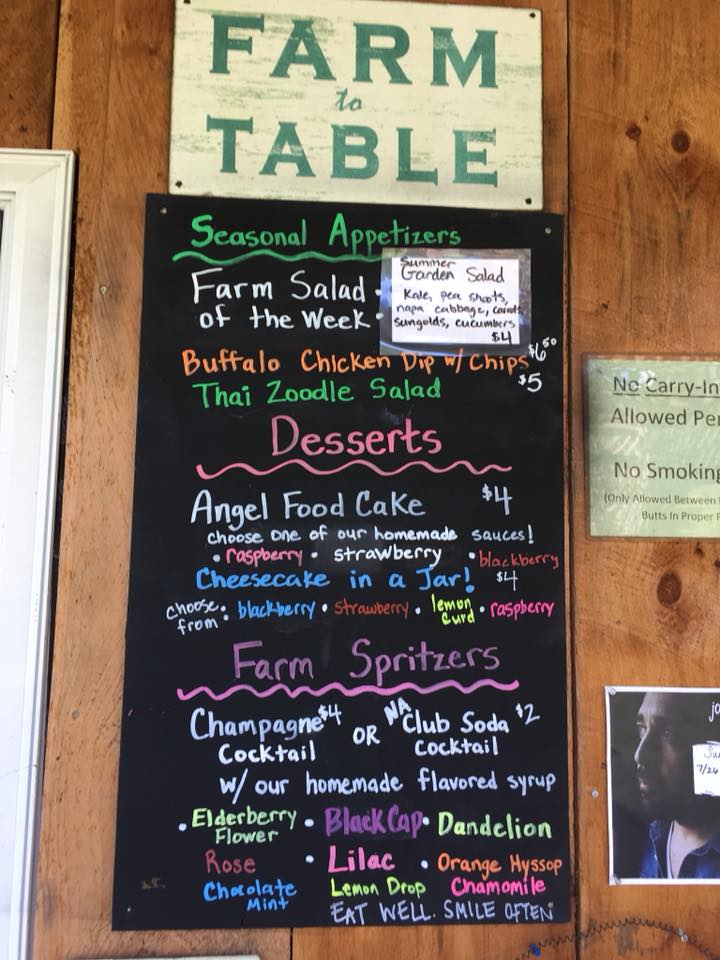 FARM
to
TABLE
Seasonal Appetizers
Farm Salad •
of the Week •
Summer
Garden Salad
Kale, pea shoots,
napa cabbage, carrots,
sungolds, cucumbers
$4
Buffalo Chicken Dip w/ Chips $6.50
Thai Zoodle Salad $5
Desserts
Angel Food Cake $4
choose one of our homemade sauces!
• raspberry • strawberry • blackberry
Cheesecake in a Jar! $4
choose from: blackberry • strawberry • lemon curd • raspberry
Farm Spritzers
Champagne $4 OR NA Club Soda $2
Cocktail Cocktail
w/ our homemade flavored syrup
• Elderberry Flower • Black Cap • Dandelion
Rose • Lilac • Orange Hyssop
Chocolate Mint Lemon Drop Chamomile
EAT WELL. SMILE OFTEN
No Carry-In
Allowed Pe
No Smoking
(Only Allowed Between
Butts In Proper
jo
7/26